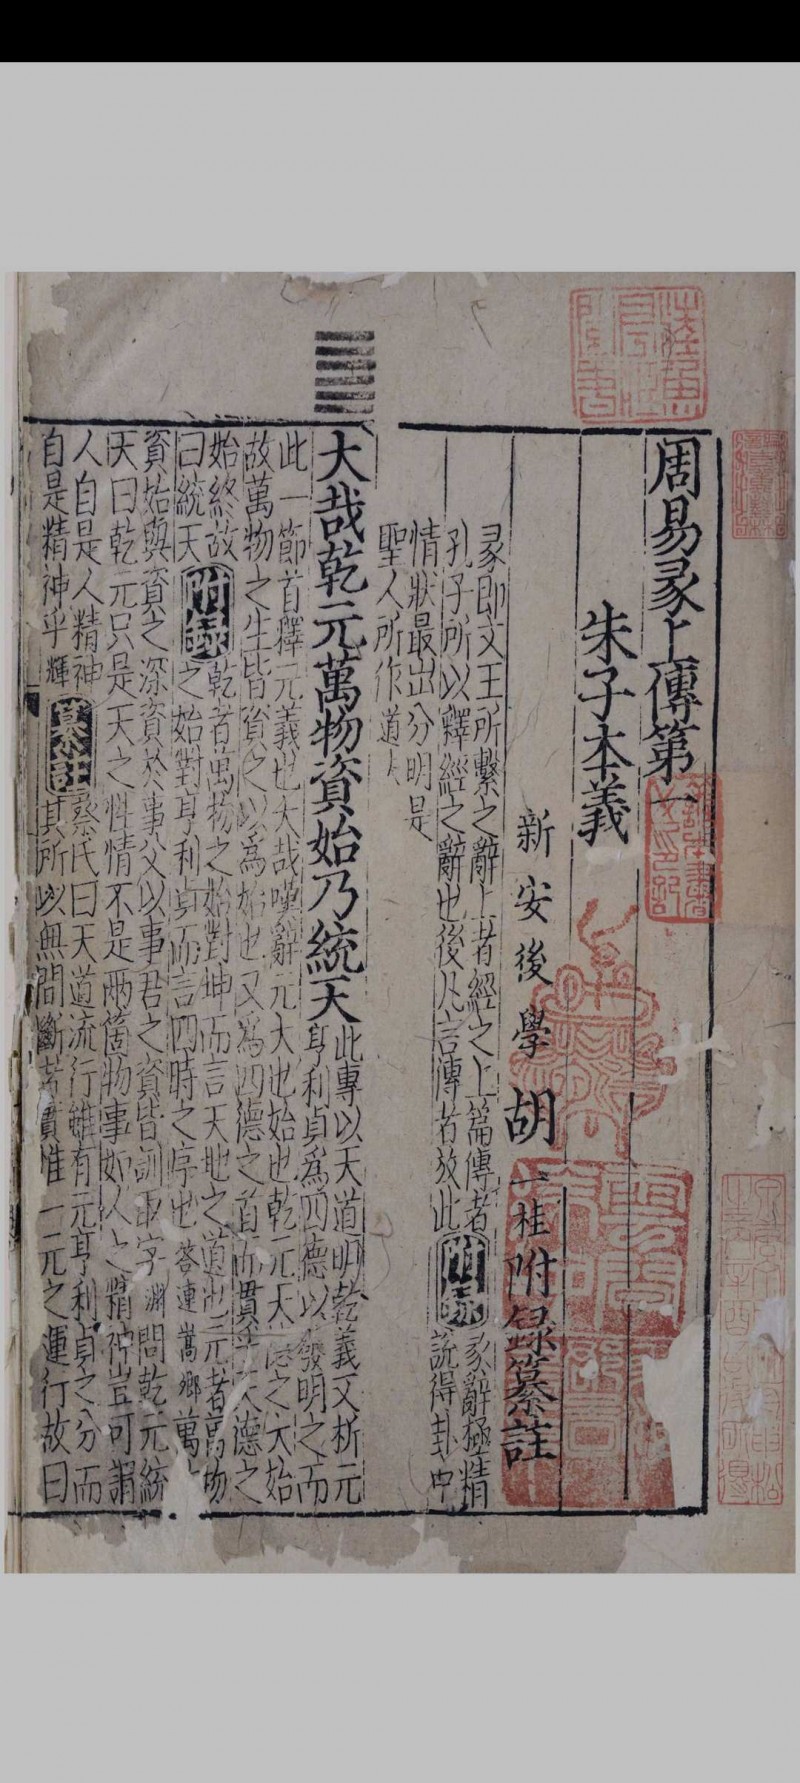 周易彖上傳第一
朱子本義
新安後學胡一桂附錄纂註
彖即文王所繫之辭上者經之上篇傳者
孔子所以釋經之辭也後凡言傳者放此
附錄
彖辭極精
說得卦中
情狀最出分明是
聖人所作道夫
大哉乾元萬物資始乃統天
此專以天道明乾義又析元
亨利貞爲四德以發明之而
此一節首釋元義也大哉嘆辭元大也始也乾元天德之大始
故萬物之生皆資之以爲始也又爲四德之首而貫乎天德之
始終故
曰統天
附錄
乾者萬物之始對坤而言天地之道也元者萬物
之始對亨利貞而言四時之序也答連嵩卿萬
資始與資之深資於事父以事君之資皆訓取字淵問乾元統
天曰乾元只是天之性情不是兩箇物事如人之精神豈可謂
人自是人精神
自是精神乎輝
纂註
蔡氏曰天道流行雖有元亨利貞之分而
其所以無間斷者實惟一元之運行故曰